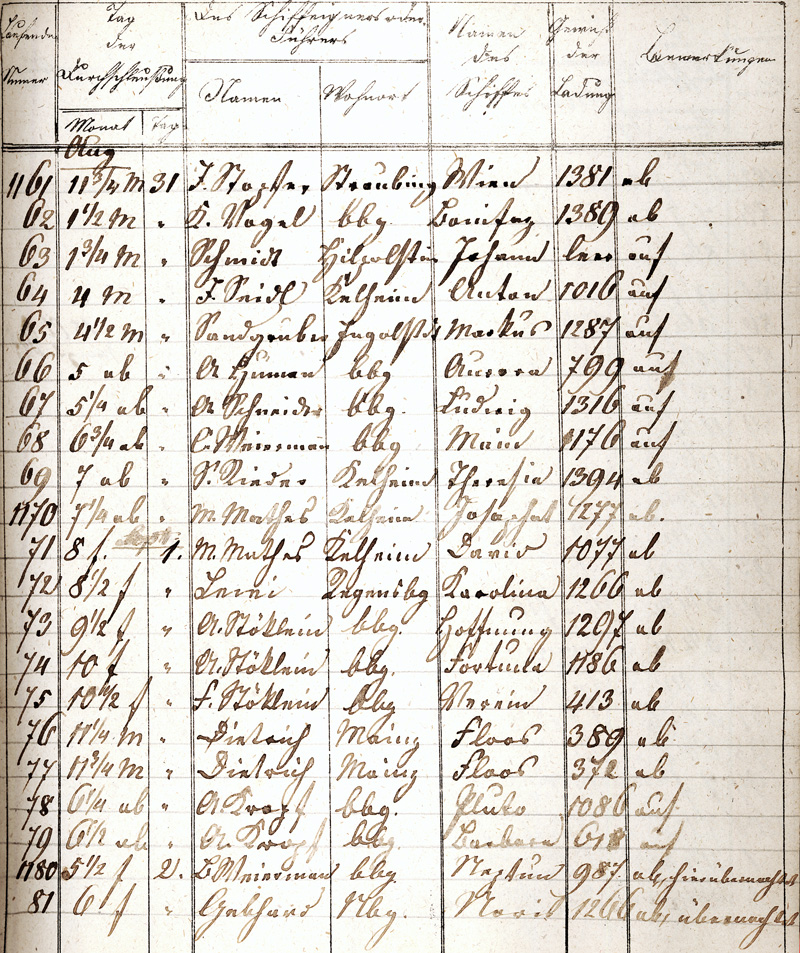 Laufende Numer | Tag der Durchschleußung | Des Schiffeigners oder Führers | Namen des Schiffes | Gewicht der Ladung | Bemerkungen
Monat | Tag | Namen | Wohnort
Aug
1161 11 3/4 M 31 J. Stopfer Straubing Wien 1381 ab
62 1 1/2 M " K. Vogel bbg Bonifaz 1389 ab
63 1 3/4 M " Schmidt Hilpolstein Johann leer auf
64 4 M " J. Seidl Kelheim Anton 1016 auf
65 4 1/2 M " Sandgruber Ingolstdt Markus 1287 auf
66 5 ab " A. Human bbg Aurora 799 auf
67 5 1/4 ab " A. Schneider bbg. Ludwig 1316 auf
68 6 3/4 ab " Weierman bbg Main 1176 auf
69 7 ab " S. Rieder Kelheim Theresia 1394 ab
1170 7 1/4 ab " M. Mathes Kelheim Josephat 1277 ab.
Sept
71 8 f. 1. M. Mathes Kelheim David 1077 ab
72 8 1/2 f " Regensbg Karolina 1266 ab
73 9 1/2 f " A. Stöklein bbg. Hoffnung 1207 ab
74 10 f " A. Stöklein bbg. Fortuna 1186 ab
75 10 1/2 f " F. Stöklein bbg Verein 413 ab
76 11 1/4 M " Dietrich Mainz Floos 389 ab
77 11 3/4 M " Dietrich Mainz Floos 372 ab
78 6 1/4 ab " A. Kropf bbg. Pluto 1086 auf
79 6 1/2 ab " A. Kropf bbg. Barbara 618 auf
1180 5 1/2 f 2. B. Weierman bbg Neptun 987 ab, hier übernachtet
81 6 f " Gebhard Nbg. 1266 ab, übernachtet